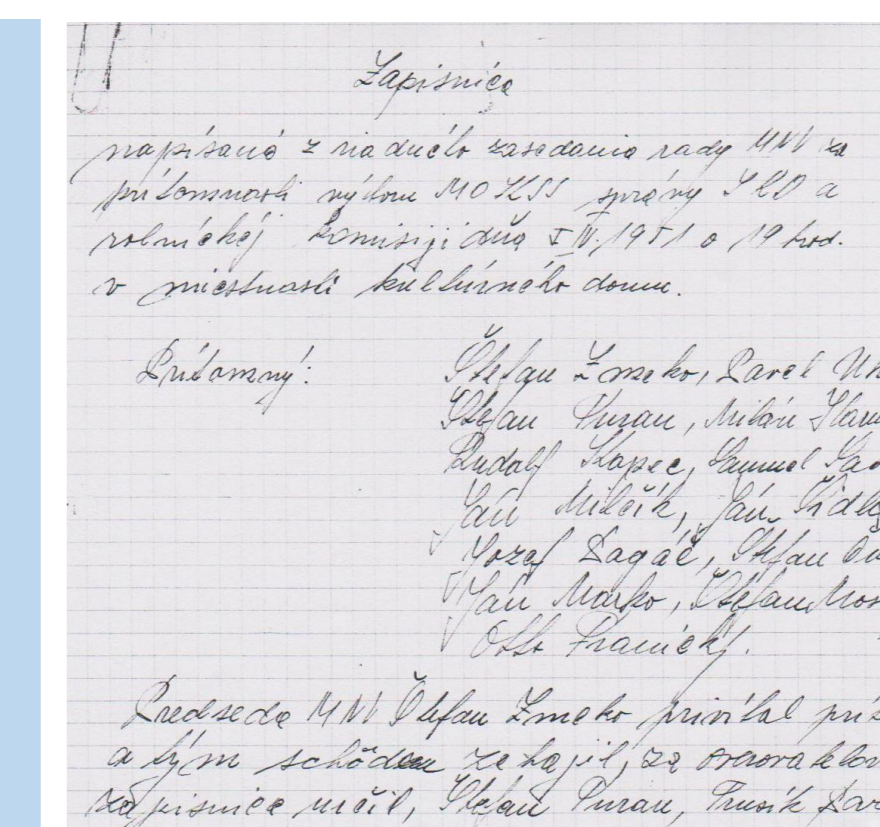 Zapisnica
napísaná z riadného zasedania rady MNV za
prítomnosti výboru MO KSS správy JRD a
rolníckéj komisiji dňa IV. 1951 o 19 hod.
v miestnosti kultúrného domu.
Prítomný: Štefan Zmeko, Pavel
Štefan Puran, Milán
Rudolf Kapec, Samuel
Ján Milčík, Ján
Jozef Ragáč, Štefan
Ján Marko, Štefan
Otto Franický.
Predseda MNV Štefan Zmeko privítal
a tým schôdzu zahájil, za overovatelov
zápisnice určil, Štefan Puran,